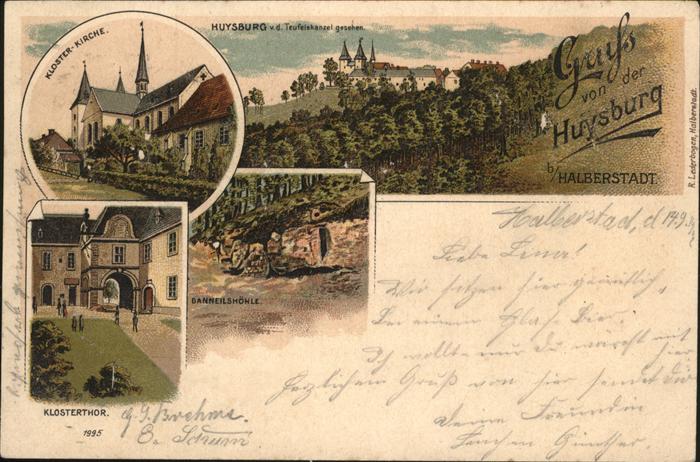 KLOSTER-KIRCHE.
HUYSBURG v. d. Teufelskanzel gesehen.
Gruss
von der
Huysburg
b/HALBERSTADT.
R. Lederbogen, Halberstadt.
DANNEILSHÖHLE.
KLOSTERTHOR.
1995
Halberstad, d 14.9.
Liebe Lina!
Wir sitzen hier gemütlich,
bei einem Glas Bier.
Ich wollte nur du wärest mit hier
Herzlichen Gruß von hier sendet dir
Deine Freundin
Linchen Günther.
G. Brehme.
E. Schum